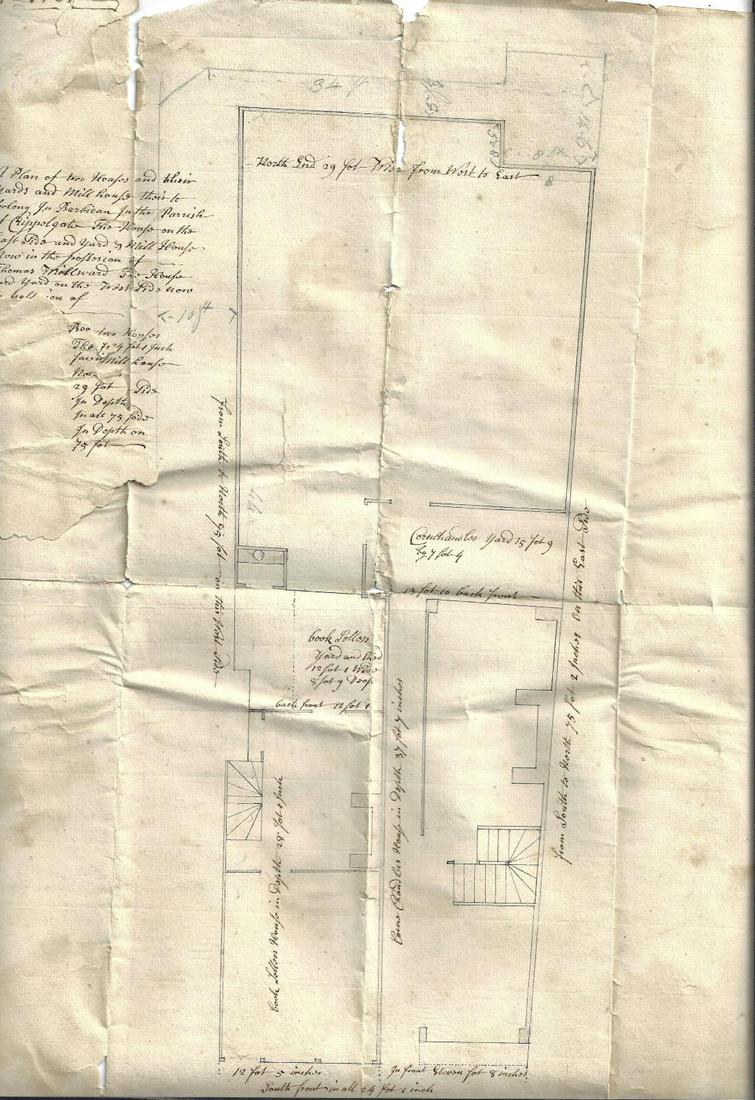 34 f
8 ft
8
North End 29 fot Wide from West to East
A Plan of two Houses and their
yards and Mill house their to
belong In Barbican In the Parrish
of Crippelgate The House on the
East Side and Yard & Mill House
Now in the possesion of
Thomas Millward The House
and Yard on the West Side now
of
10 ft
two Houses
4 fot 1 Inch
Mill house
29 fot Side
In Depth
In all 75 Side
In Depth on
75 fot
from South to North 95 fot on this West Side
Cornchandler Yard 15 fot 9
by 7 fot 4
13 fot 10 back front
from South to North 75 fot 2 Inches On this East Side
book Sellers
Yard and
12 fot 1 Wide
8 fot 9 Deep
back front 12 fot 1
book Sellers House in Depth 28 fot Inch
Corne Chandler House in Depth 37 fot 7 inches
12 fot 5 inches
In front Eleven fot 8 inches
South front in all 24 fot 1 inch